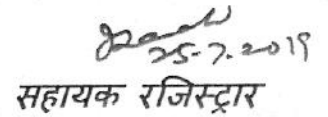 25-7-2019
सहायक रजिस्ट्रार